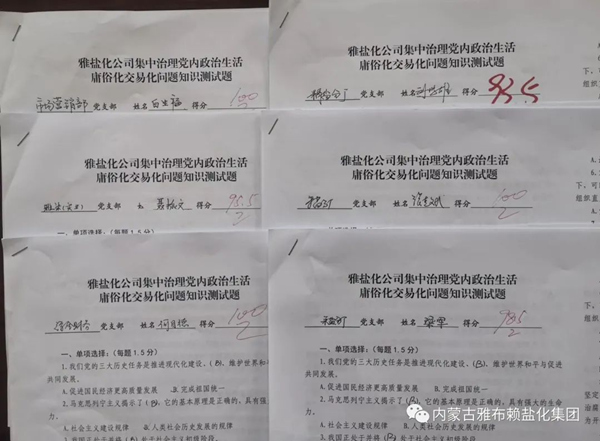 雅盐化公司集中治理党内政治生活
庸俗化交易化问题知识测试题
市场营销部 党支部 姓名 白生福 得分 100
雅盐化公司集中治理党内政治生活
庸俗化交易化问题知识测试题
党支部 姓名 得分 98.5
雅盐化公司集中治理党内政治生活
庸俗化交易化问题知识测试题
党支部 得分 98.5
一、单项选择:(每题1.5分)
雅盐化公司集中治理党内政治生活
庸俗化交易化问题知识测试题
党支部 姓名 得分 100
雅盐化公司集中治理党内政治生活
庸俗化交易化问题知识测试题
党支部 姓名 得分 100
一、单项选择:(每题1.5分)
1.我们党的三大历史任务是推进现代化建设、(B)、维护世界和平与促进
共同发展。
A.促进国民经济更高质量发展 B.完成祖国统一
2.马克思列宁主义揭示了(B),它的基本原理是正确的,具有强大
力。
A.社会主义建设规律 B.人类社会历史发展的规律
3.我国正处于并将(B)处于社会主义初级阶段。
雅盐化公司集中治理党内政治生活
庸俗化交易化问题知识测试题
党支部 姓名 得分 98.5
一、单项选择:(每题1.5分)
1.我们党的三大历史任务是推进现代化建设、(B)、维护世界和平与促进
共同发展。
A.促进国民经济更高质量发展 B.完成祖国统一
2.马克思列宁主义揭示了(B),它的基本原理是正确的,具有强
力。
A.社会主义建设规律 B.人类社会历史发展
3.我国正处于并将(B)处于社会主义初级阶段。
内蒙古雅布赖盐化集团